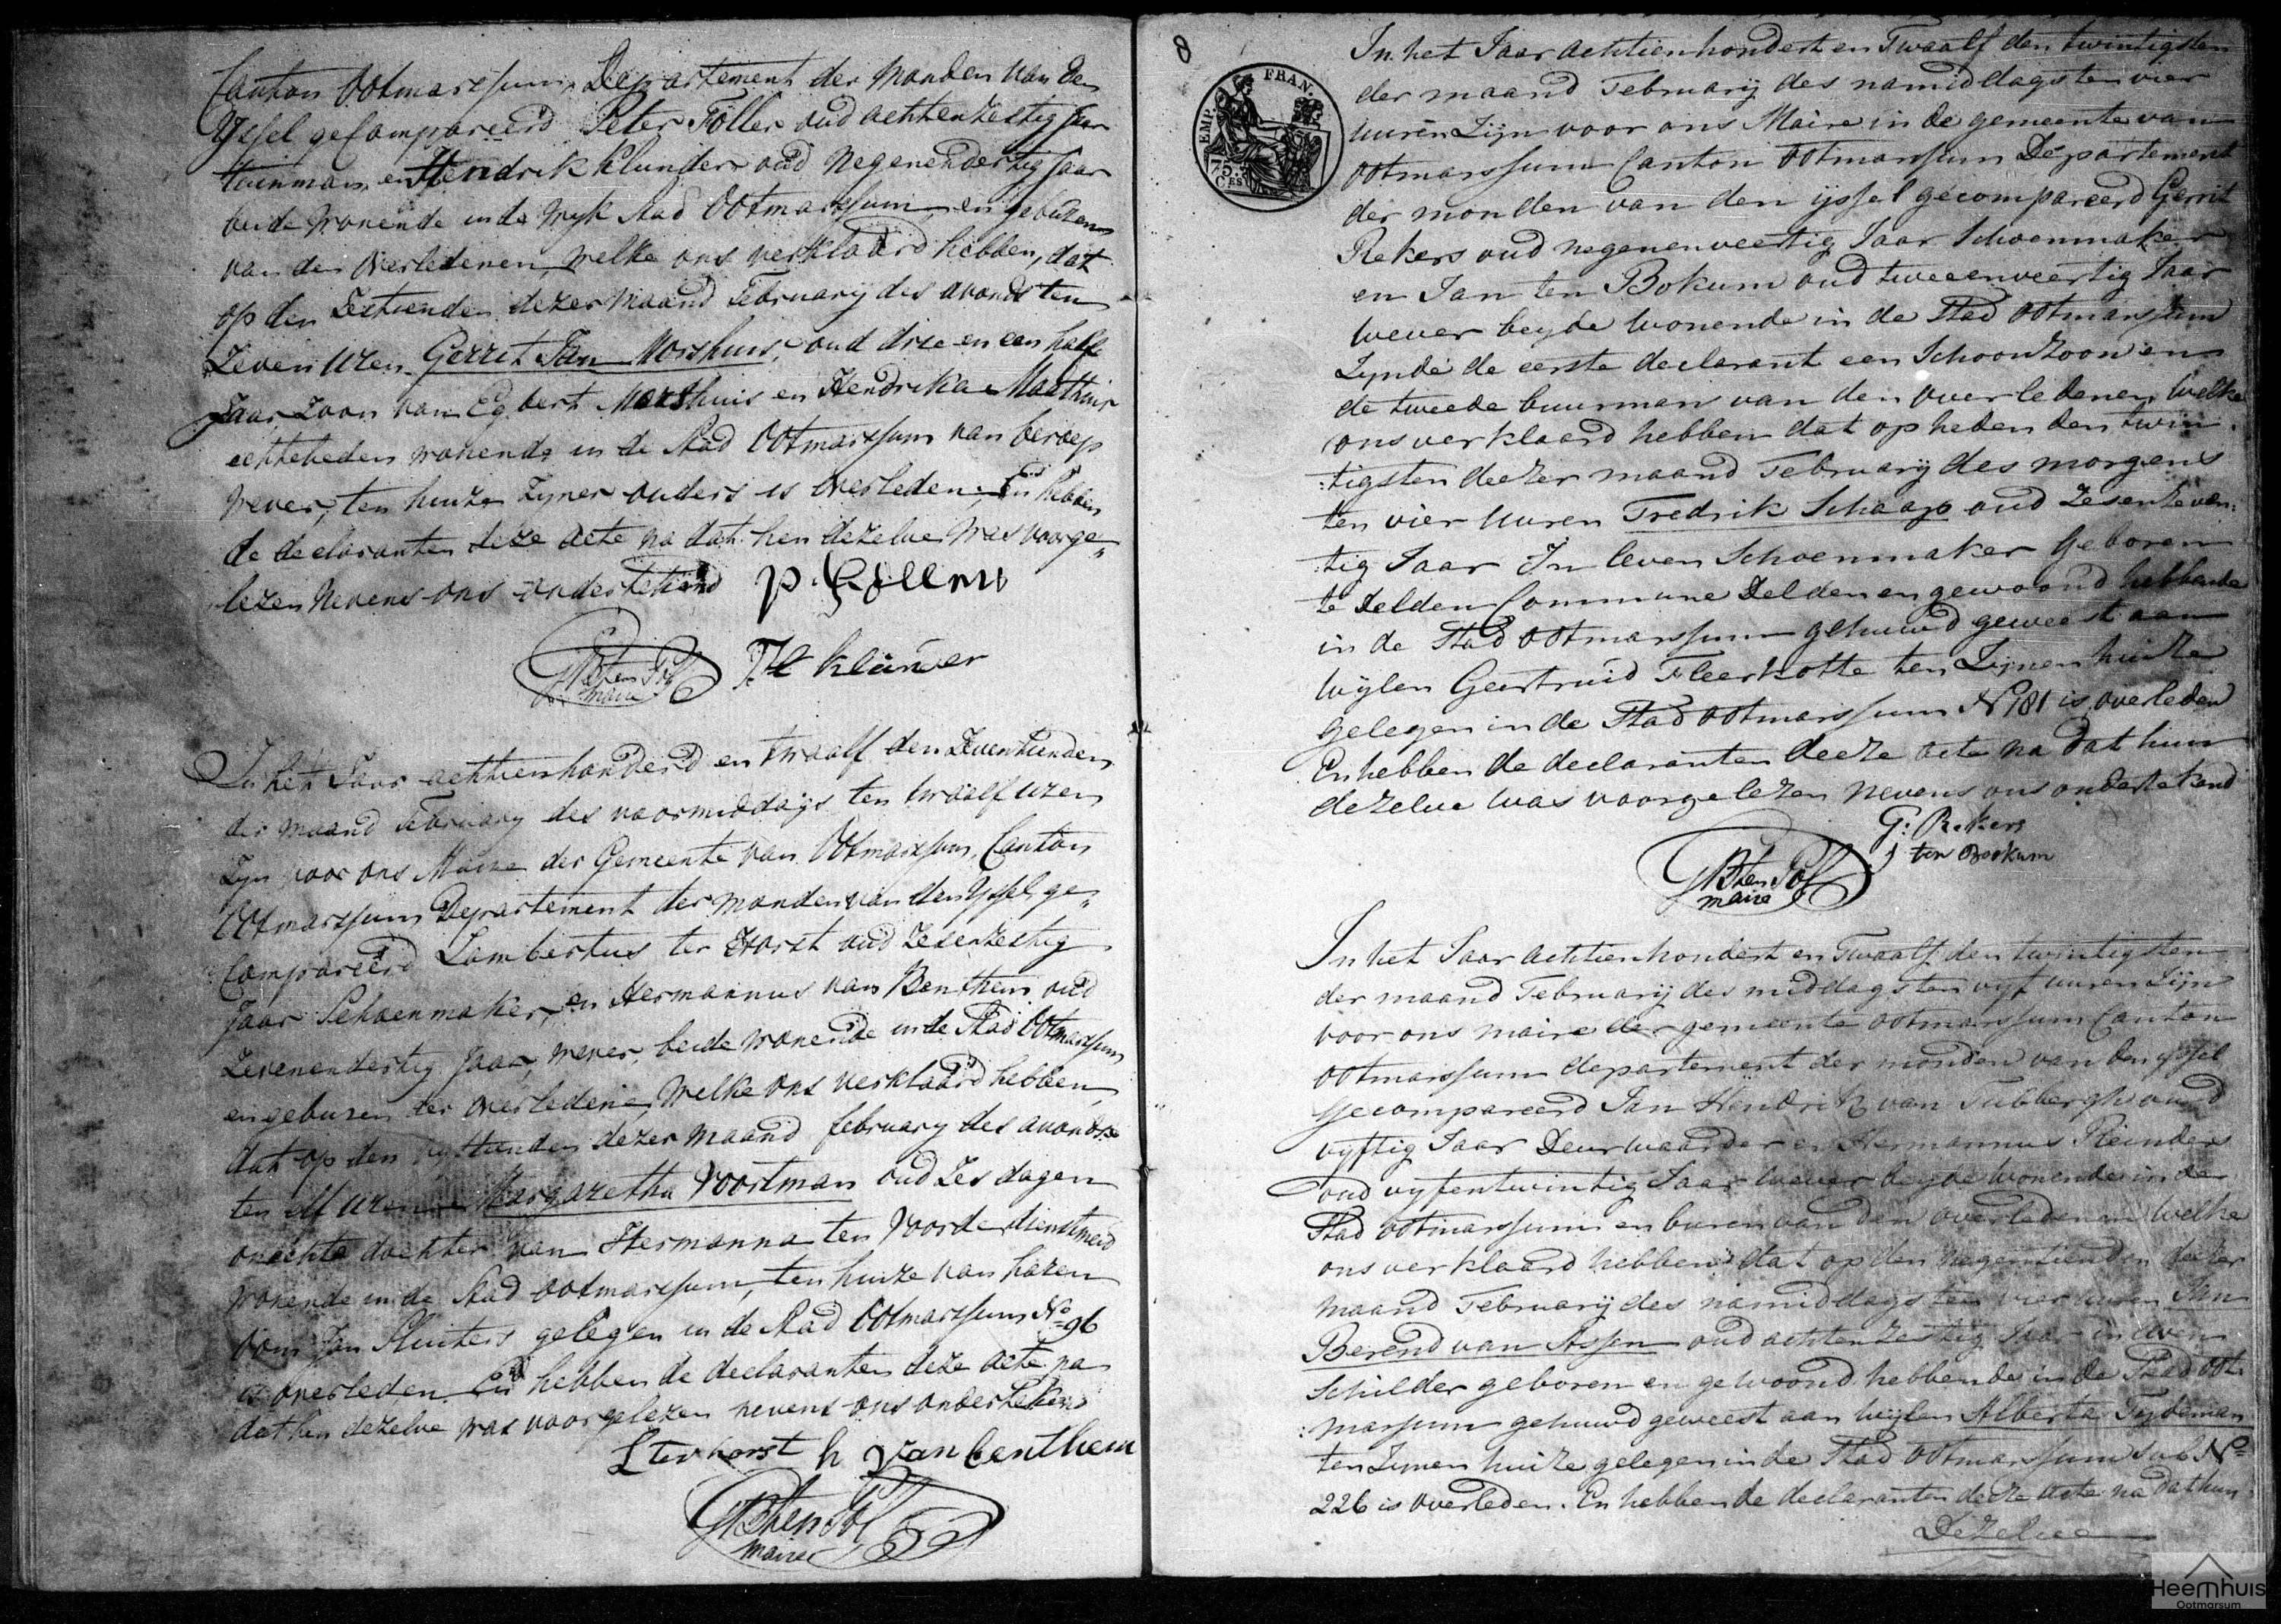 Canton Ootmarssum, Departement der monden van den
Yssel gecompareerd Peter Töller oud achtenzestig Jaar
tuinman, en Hendrik Klunder oud negenendertig Jaar
beide wonende in de wyk Stad Ootmarssum, en gebuzen
van den overledenen, welke ons verklaard hebben, dat
op den Zestienden dezer Maand February des avonds ten
Zeven uren Gerret Jan Morshuis, oud drie en een half
Jaar Zoon van Egbert Morshuis en Hendrika Maathuis
echtelieden wonende in de Stad Ootmarssum van beroep
wever, ten huize Zyner ouders is overleden, En hebben
de declaranten deze acte na dat hen dezelve was voorge„
lezen nevens ons ondertekend P. Töllen
GB ten Pol
maire
H klunder
In het Jaar achttienhonderd en twaalf den Zeventienden
der maand February des voormiddags ten twaalf uren
Zyn voor ons Maire der Gemeente van Ootmarssum, Canton
Ootmarssum Departement der monden van den Yssel ge„
Compareerd Lambertus ter Horst oud Zesenzestig
Jaar Schoenmaker, en Hermannus van Benthem oud
Zevenendertig Jaar, wever, beide wonende in de Stad Ootmarssum
en geburen der overledene, welke ons verklaard hebben,
dat op den vyftienden dezer maand february des avonds
ten uren Margaretha Voortman oud Zes dagen
onechte dochter van Hermanna ten Voorde dienstmeid
wonende in de Stad Ootmarssum, ten huize van haren
oom Jan Sluiters gelegen in de Stad Ootmarssum No 96
is overleden En hebben de declaranten deze acte, na
dat hen dezelve was voorgelezen nevens ons ondertekend
L ter horst h van benthem
GB ten Pol
maire
8
EMP. FRAN.
75.
CES
In het Jaar achttienhondert en Twaalf den twintigsten
der maand Februarij des namiddags ten vier
uuren Zijn voor ons Maire in de gemeente van
Ootmarssum Canton Ootmarssum Departement
der monden van den ijssel gecompareerd Gerrit
Rekers oud negenenveertig Jaar Schoenmaker
en Jan ten Bokum oud tweeenveertig Jaar
wever beyde wonende in de Stad Ootmarssum
Zynde de eerste declarant een Schoonzoon en
de tweede buurman van den overledenen, welke
ons verklaard hebben dat op heden den twin
:tigsten deezer maand Februarij des morgens
ten vier uuren Fredrik Schaap oud Zesenzeven:
:tig Jaar In leven Schoenmaker Geboren
te Delden Commune Delden en gewoond hebbende
in de Stad Ootmarssum gehuwd geweest aan
Wylen Geertruid Fleerkotte ten Zijnen huize
gelegen in de Stad Ootmarssum No 181 is overleden
En hebben de declaranten deeze acte na dat hun
dezelve was voorgelezen nevens ons ondertekend
G: Rekers
J ten Bookum
GB ten Pol
maire
In het Jaar achttienhondert en Twaalf den twintigsten
der maand Februarij des middags ten vyf uuren Zijn
voor ons maire der gemeente ootmarssum Canton
ootmarssum departement der monden van den yssel
Gecompareerd Jan Hendrik van Tubbergh oud
vyftig Jaar Deurwaarder en Hermannus Reinders
oud vyfentwintig Jaar wever beyde wonende in de
Stad Ootmarssum en buren van den overledenen welke
ons verklaard hebben dat op den negentienden deezer
maand Februarij des namiddags ten vier uuren Jan
Berend van Assen oud achtenzestig Jaar in leven
Schilder geboren en gewoond hebbende in de Stad Oot
:marssum gehuwd geweest aan wylen Alberta Tydeman
ten Zynen huize gelegen in de Stad Ootmarssum sub No
226 is overleden. En hebben de declaranten deeze acte na dat hun
Dezelve
Heemhuis
Ootmarsum